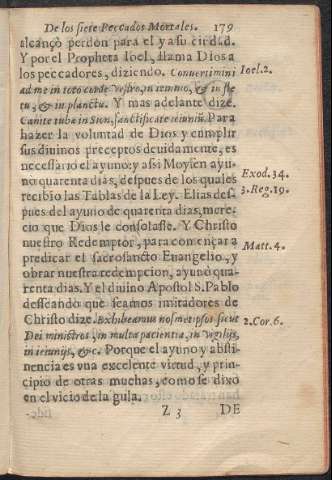 De los siete Peccados Mortales. 179
alcançò perdon para el y a su ciudad.
Y por el Propheta Ioel, llama Dios a
los peccadores, diziendo. Convertimini Ioel.2.
ad me in toto corde vestro, in ieiunio, & in fle
tu, & in planctu. Y mas adelante dize.
Canite tuba in Sion, sanctificate ieiuniũ. Para
hazer la voluntad de Dios y cumplir
sus diuinos preceptos deuidamente, es
necessario el ayuno: y assi Moysen ayu
nò quarenta dias, despues de los quales Exod.34.
recibio las Tablas de la Ley. Elias des- 3.Reg.19.
pues del ayuno de quarenta dias, mere-
cio que Dios le consolasse. Y Christo
nuestro Redemptor, para començar a Matt.4.
predicar el sacrosancto Euangelio, y
obrar nuestra redempcion, ayunò qua-
renta dias. Y el diuino Apostol S. Pablo
desseando que seamos imitadores de
Christo dize. Exhibeamus nosmetipsos sicut 2.Cor.6.
Dei ministros, in multa pacientia, in vigilijs,
in ieiunijs, &c. Porque el ayuno y absti
nencia es vna excelente virtud, y prin-
cipio de otras muchas, como se dixo
en el vicio de la gula.
Z 3 DE